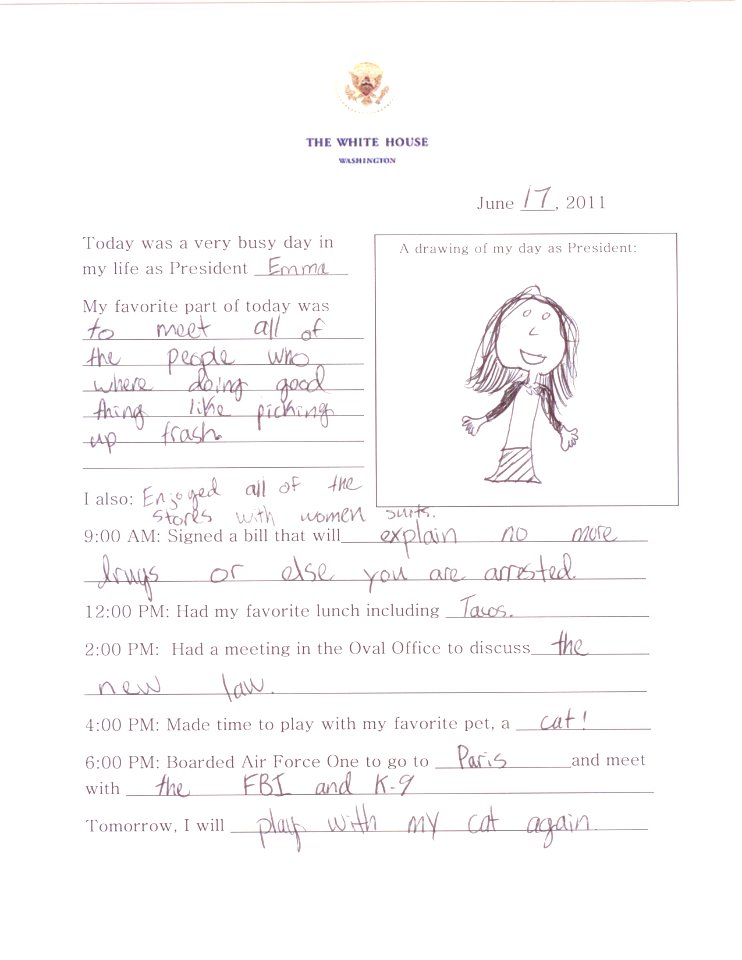 THE WHITE HOUSE
WASHINGTON
June 17, 2011
Today was a very busy day in
my life as President Emma
My favorite part of today was
to meet all of
the people who
where doing good
thing like picking
up trash.
I also: Enjoyed all of the
stores with women suits.
A drawing of my day as President:
9:00 AM: Signed a bill that will explain no more
drugs or else you are arrested.
12:00 PM: Had my favorite lunch including Tacos.
2:00 PM: Had a meeting in the Oval Office to discuss the
new law.
4:00 PM: Made time to play with my favorite pet, a cat!
6:00 PM: Boarded Air Force One to go to Paris and meet
with the FBI and K-9
Tomorrow, I will play with my cat again.